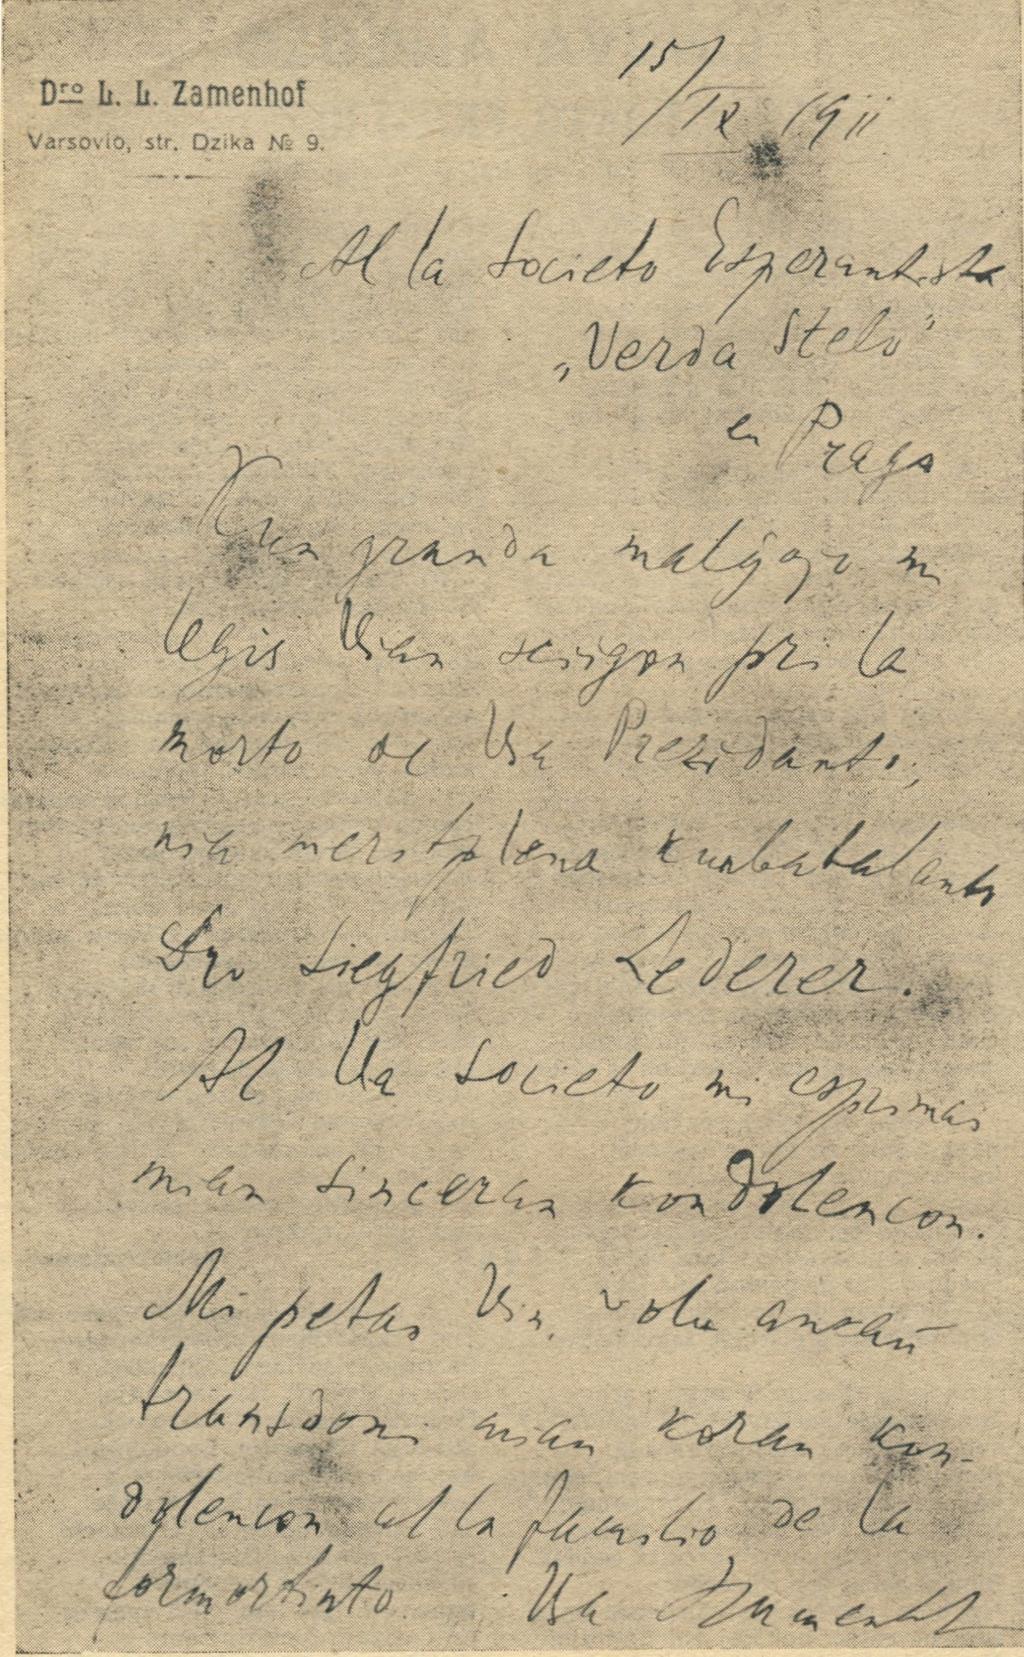 Dro L. L. Zamenhof
Varsovio, str. Dzika № 9.
15/IX 1911
Al la Societo Esperantista
„Verda Stelo"
en Prago
Kun granda malĝojo mi
legis Vian sciigon pri la
morto de Via Prezidanto,
nia meritplena kunbatalanto
Dro Siegfried Lederer.
Al Via Societo mi esprimas
mian sinceran kondolencon.
Mi petas Vin, volu ankaŭ
transdoni mian koran kon-
dolencon al la familio de la
formortinto. Via Zamenhof